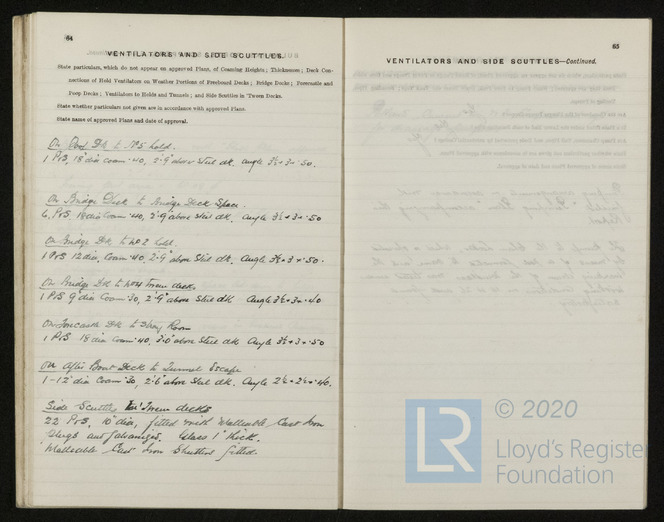 64
VENTILATORS AND SIDE SCUTTLES.
State particulars, which do not appear on approved Plans, of Coaming Heights; Thicknesses; Deck Con-
nections of Hold Ventilators on Weather Portions of Freeboard Decks; Bridge Decks; Forecastle and
Poop Decks; Ventilators to Holds and Tunnels; and Side Scuttles in 'Tween Decks.
State whether particulars not given are in accordance with approved Plans.
State name of approved Plans and date of approval.
On Poop Dk to No 5 hold.
1 P&S, 18" dia Coam .40, 2'.9" above Steel dk. angle 3½ × 3 × .50.
On Bridge Deck to Bridge Deck Space.
6, P&S 18" dia Coam .40, 2'.9" above Steel dk. Angle 3½ × 3 × .50
On Bridge Dk to No 2 hold.
1 P&S 12" dia, Coam .40, 2'.9" above Steel dk. Angle 3½ × 3 × .50.
On Bridge Dk to No 4 Tween decks.
1 P&S 9" dia Coam .30, 2'.9" above Steel dk Angle 3½ × 3 × .40
On Forecastle Dk to Room
1 P&S 18" dia Coam .40, 3'.0" above Steel dk Angle 3½ × 3 × .50
On After Boat Deck to Tunnel Escape
1 - 12" dia Coam .30, 2'.6" above Steel dk. Angle 2½ × 2½ × .40.
Side Scuttles Tween decks
22 P&S, 10" dia, fitted with Malleable Cast Iron
and Galvanized. Glass 1" thick.
Malleable Cast Iron Shutters fitted.
65
VENTILATORS AND SIDE SCUTTLES—Continued.
© 2020
LR
Lloyd's Register
Foundation